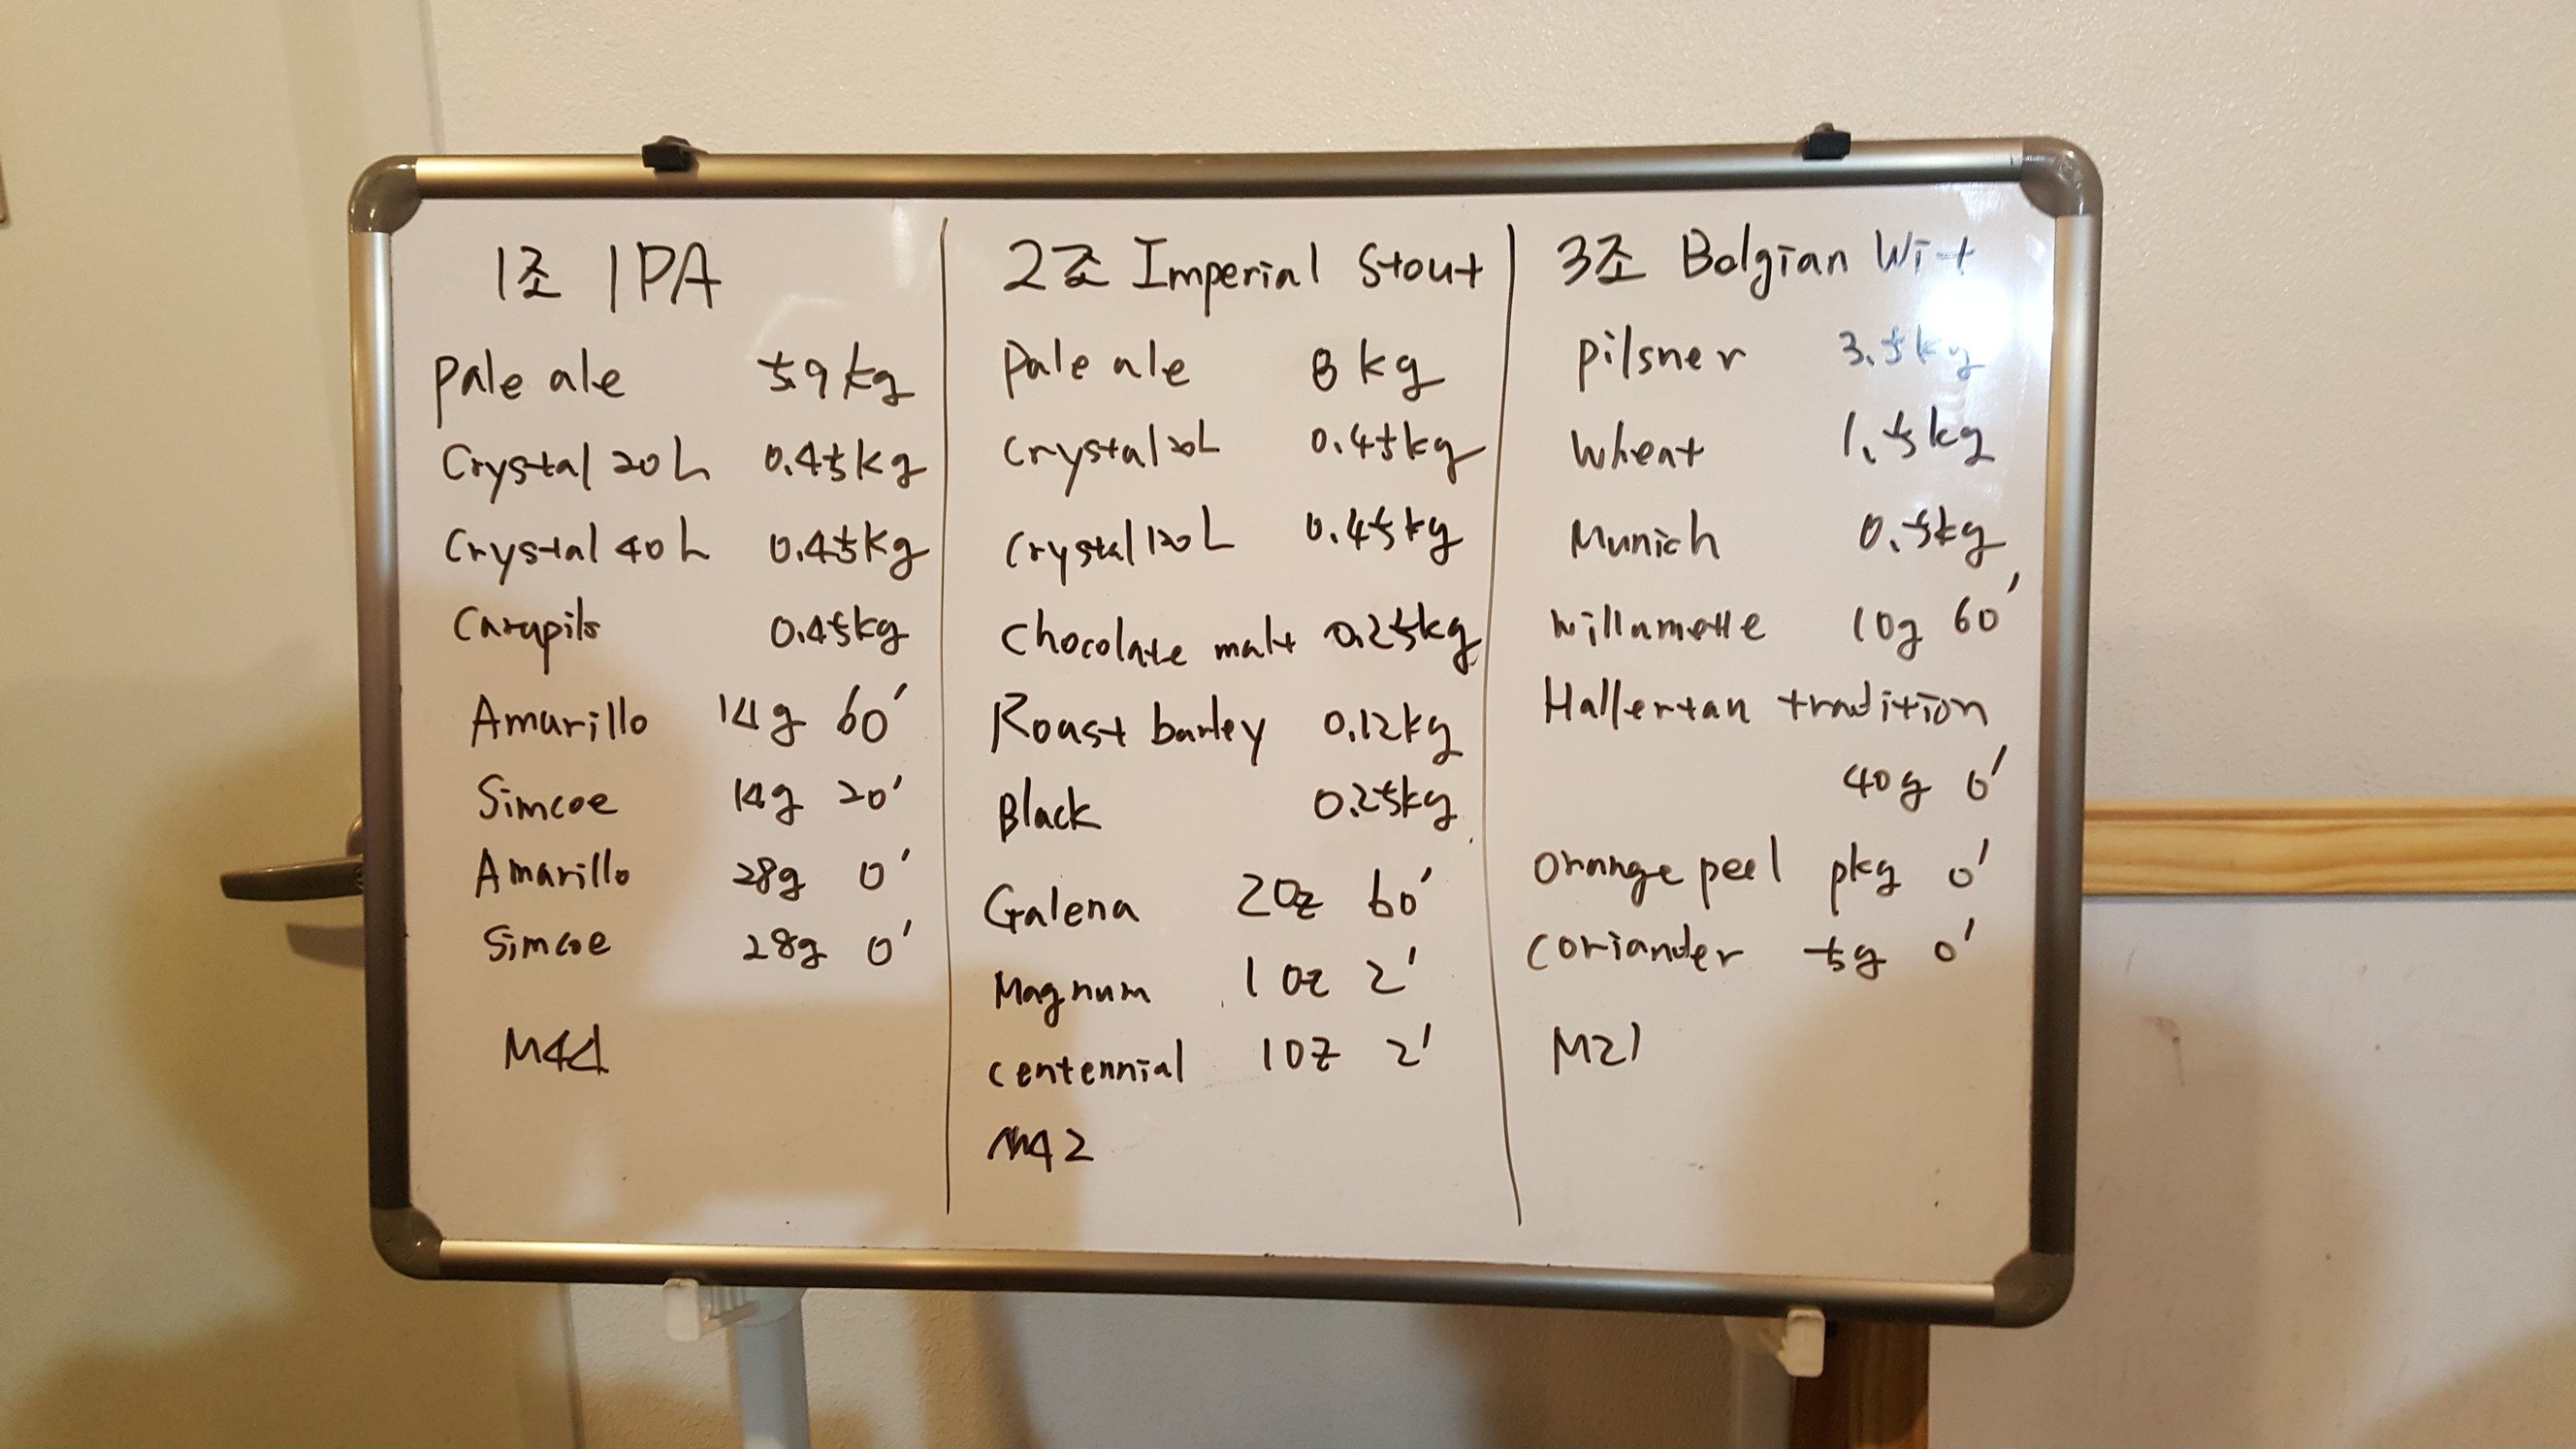 1조 IPA
Pale ale 5.9kg
Crystal 20L 0.45kg
Crystal 40L 0.45kg
Carapils 0.45kg
Amarillo 14g 60'
Simcoe 14g 20'
Amarillo 28g 0'
Simcoe 28g 0'
M44
2조 Imperial Stout
Pale ale 8kg
Crystal 20L 0.45kg
Crystal 120L 0.45kg
Chocolate malt 0.25kg
Roast barley 0.12kg
Black 0.25kg
Galena 2oz 60'
Magnum 1oz 2'
Centennial 1oz 2'
M42
3조 Belgian Wit
Pilsner 3.5kg
Wheat 1.5kg
Munich 0.5kg
Willamette 10g 60'
Hallertau tradition
40g 0'
Orange peel pkg 0'
Coriander 5g 0'
M21